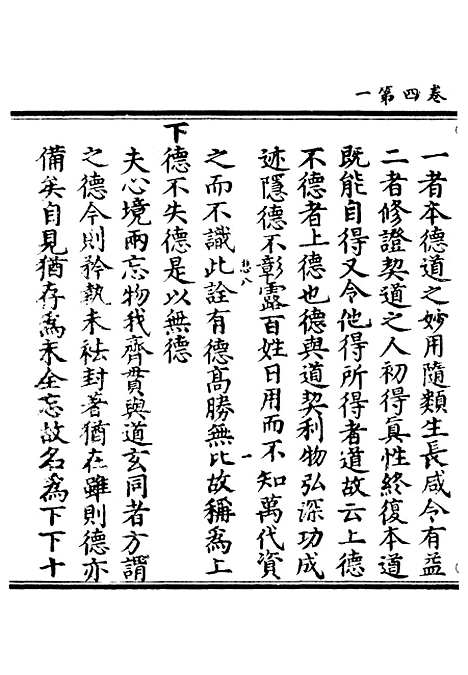 卷四第一
一者本德道之妙用隨類生長咸令有益
二者修證契道之人初得真性終復本道
既能自得又令他得所得者道故云上德
不德者上德也德與道契利物弘深功成
迹隱德不彰露百姓日用而不知萬代資
悲八
一
之而不識此詮有德高勝無比故稱爲上
下德不失德是以無德
夫心境兩忘物我齊貫與道玄同者方謂
之德今則矜執未袪封著猶在雖則德亦
備矣自見猶存爲未全忘故名爲下下十